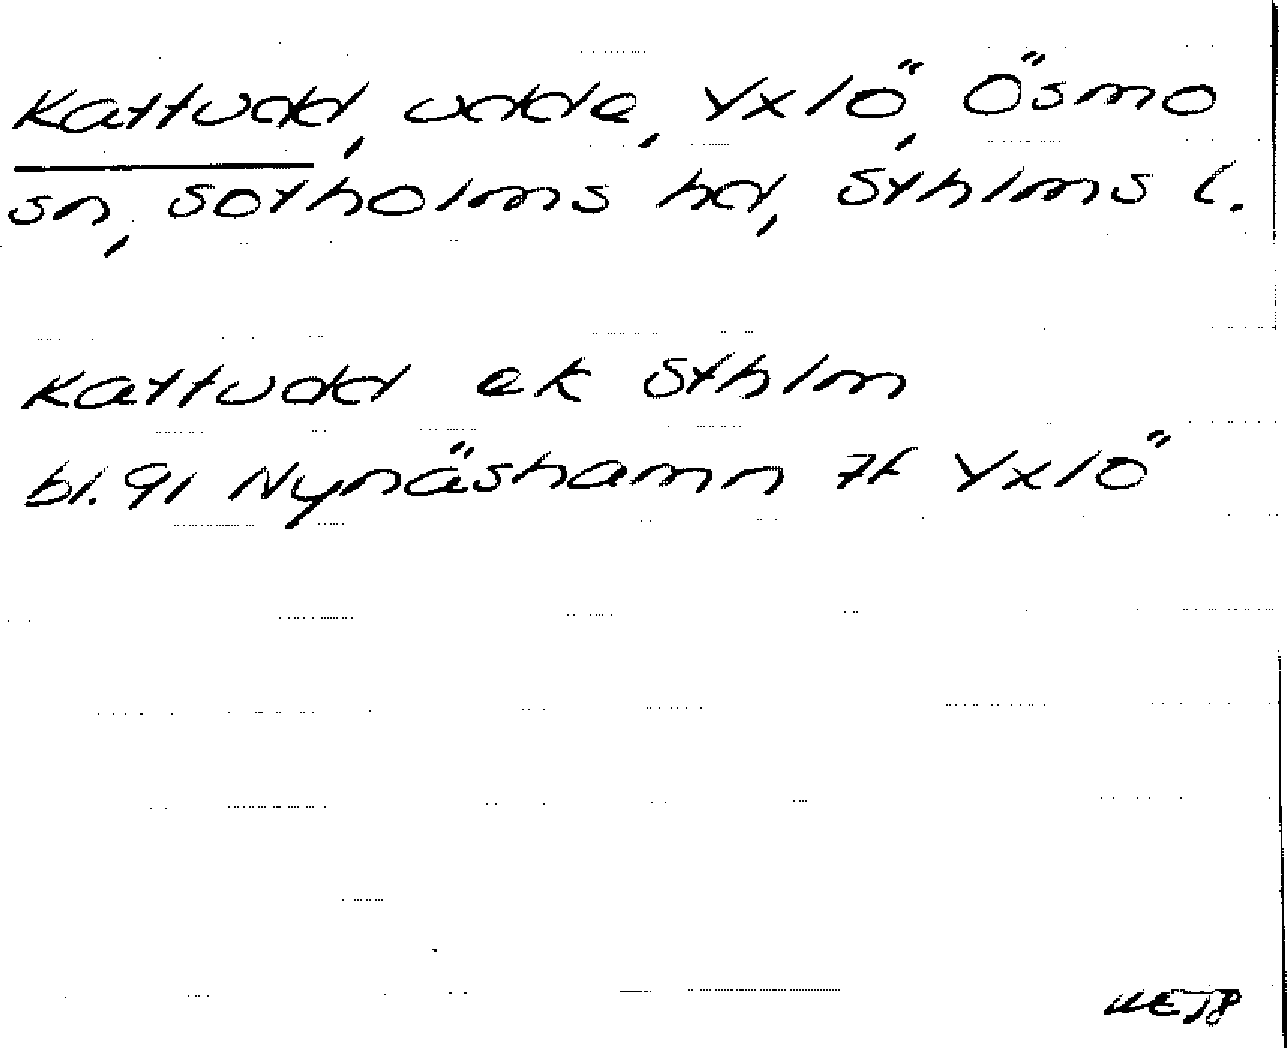 Kattudd, udde, Yxlö, Ösmo
sn, Sotholms hd, Sthlms l.
Kattudd ek Sthlm
bl. 91 Nynäshamn 7f Yxlö